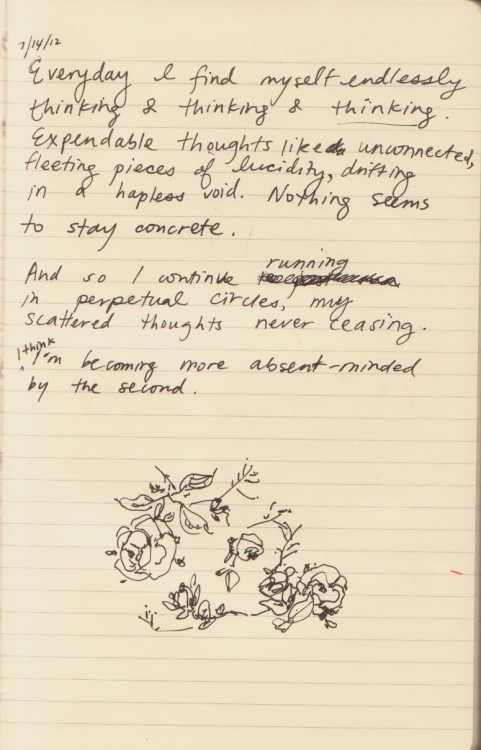 7/14/12
Everyday I find myself endlessly
thinking & thinking & thinking.
Expendable thoughts like unconnected,
fleeting pieces of lucidity, drifting
in a hapless void. Nothing seems
to stay concrete.
running
And so I continue
in perpetual circles, my
scattered thoughts never ceasing.
I think
I'm becoming more absent-minded
by the second.